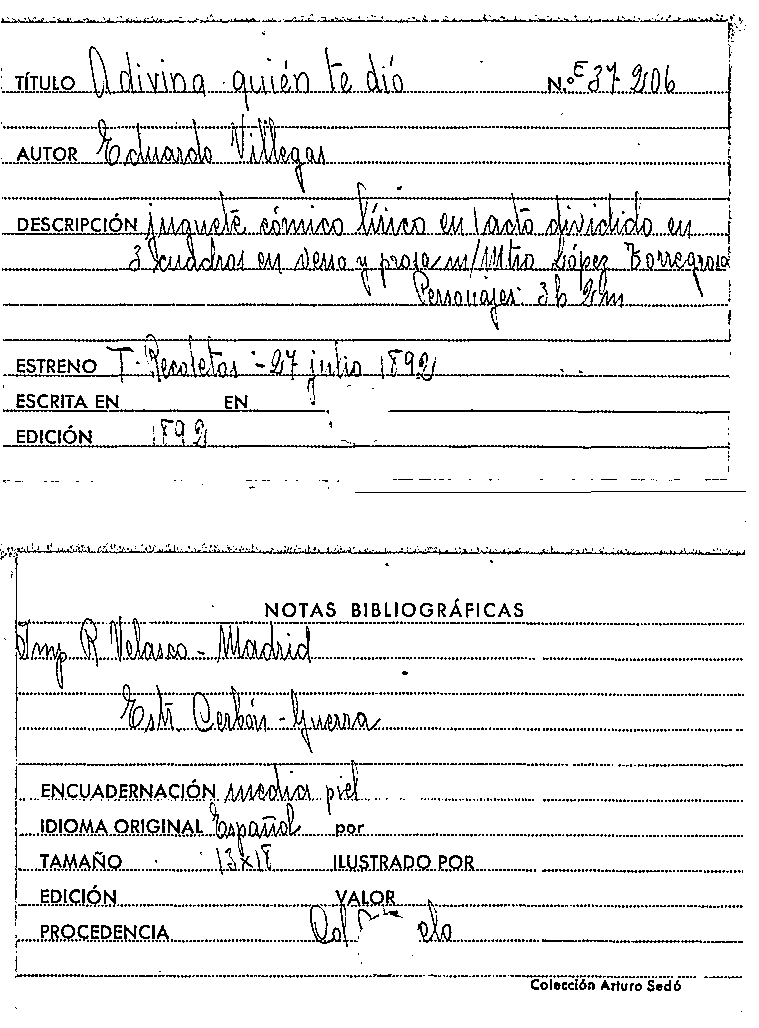 TÍTULO Adivina quién te dió N.º E 37 206
AUTOR Eduardo Villegas
DESCRIPCIÓN juguete cómico lírico en 1 acto dividido en
3 cuadros en verso y prosa m/ Mtro López Torregrosa
Personajes 3h 2m
ESTRENO T. Recoletos - 27 julio 1892
ESCRITA EN EN
EDICIÓN 1892
NOTAS BIBLIOGRÁFICAS
Imp R Velasco - Madrid
Estr. Cerbón - Guerra
ENCUADERNACIÓN media piel
IDIOMA ORIGINAL Español por
TAMAÑO 13x18 ILUSTRADO POR
EDICIÓN VALOR
PROCEDENCIA Col
Colección Arturo Sedó